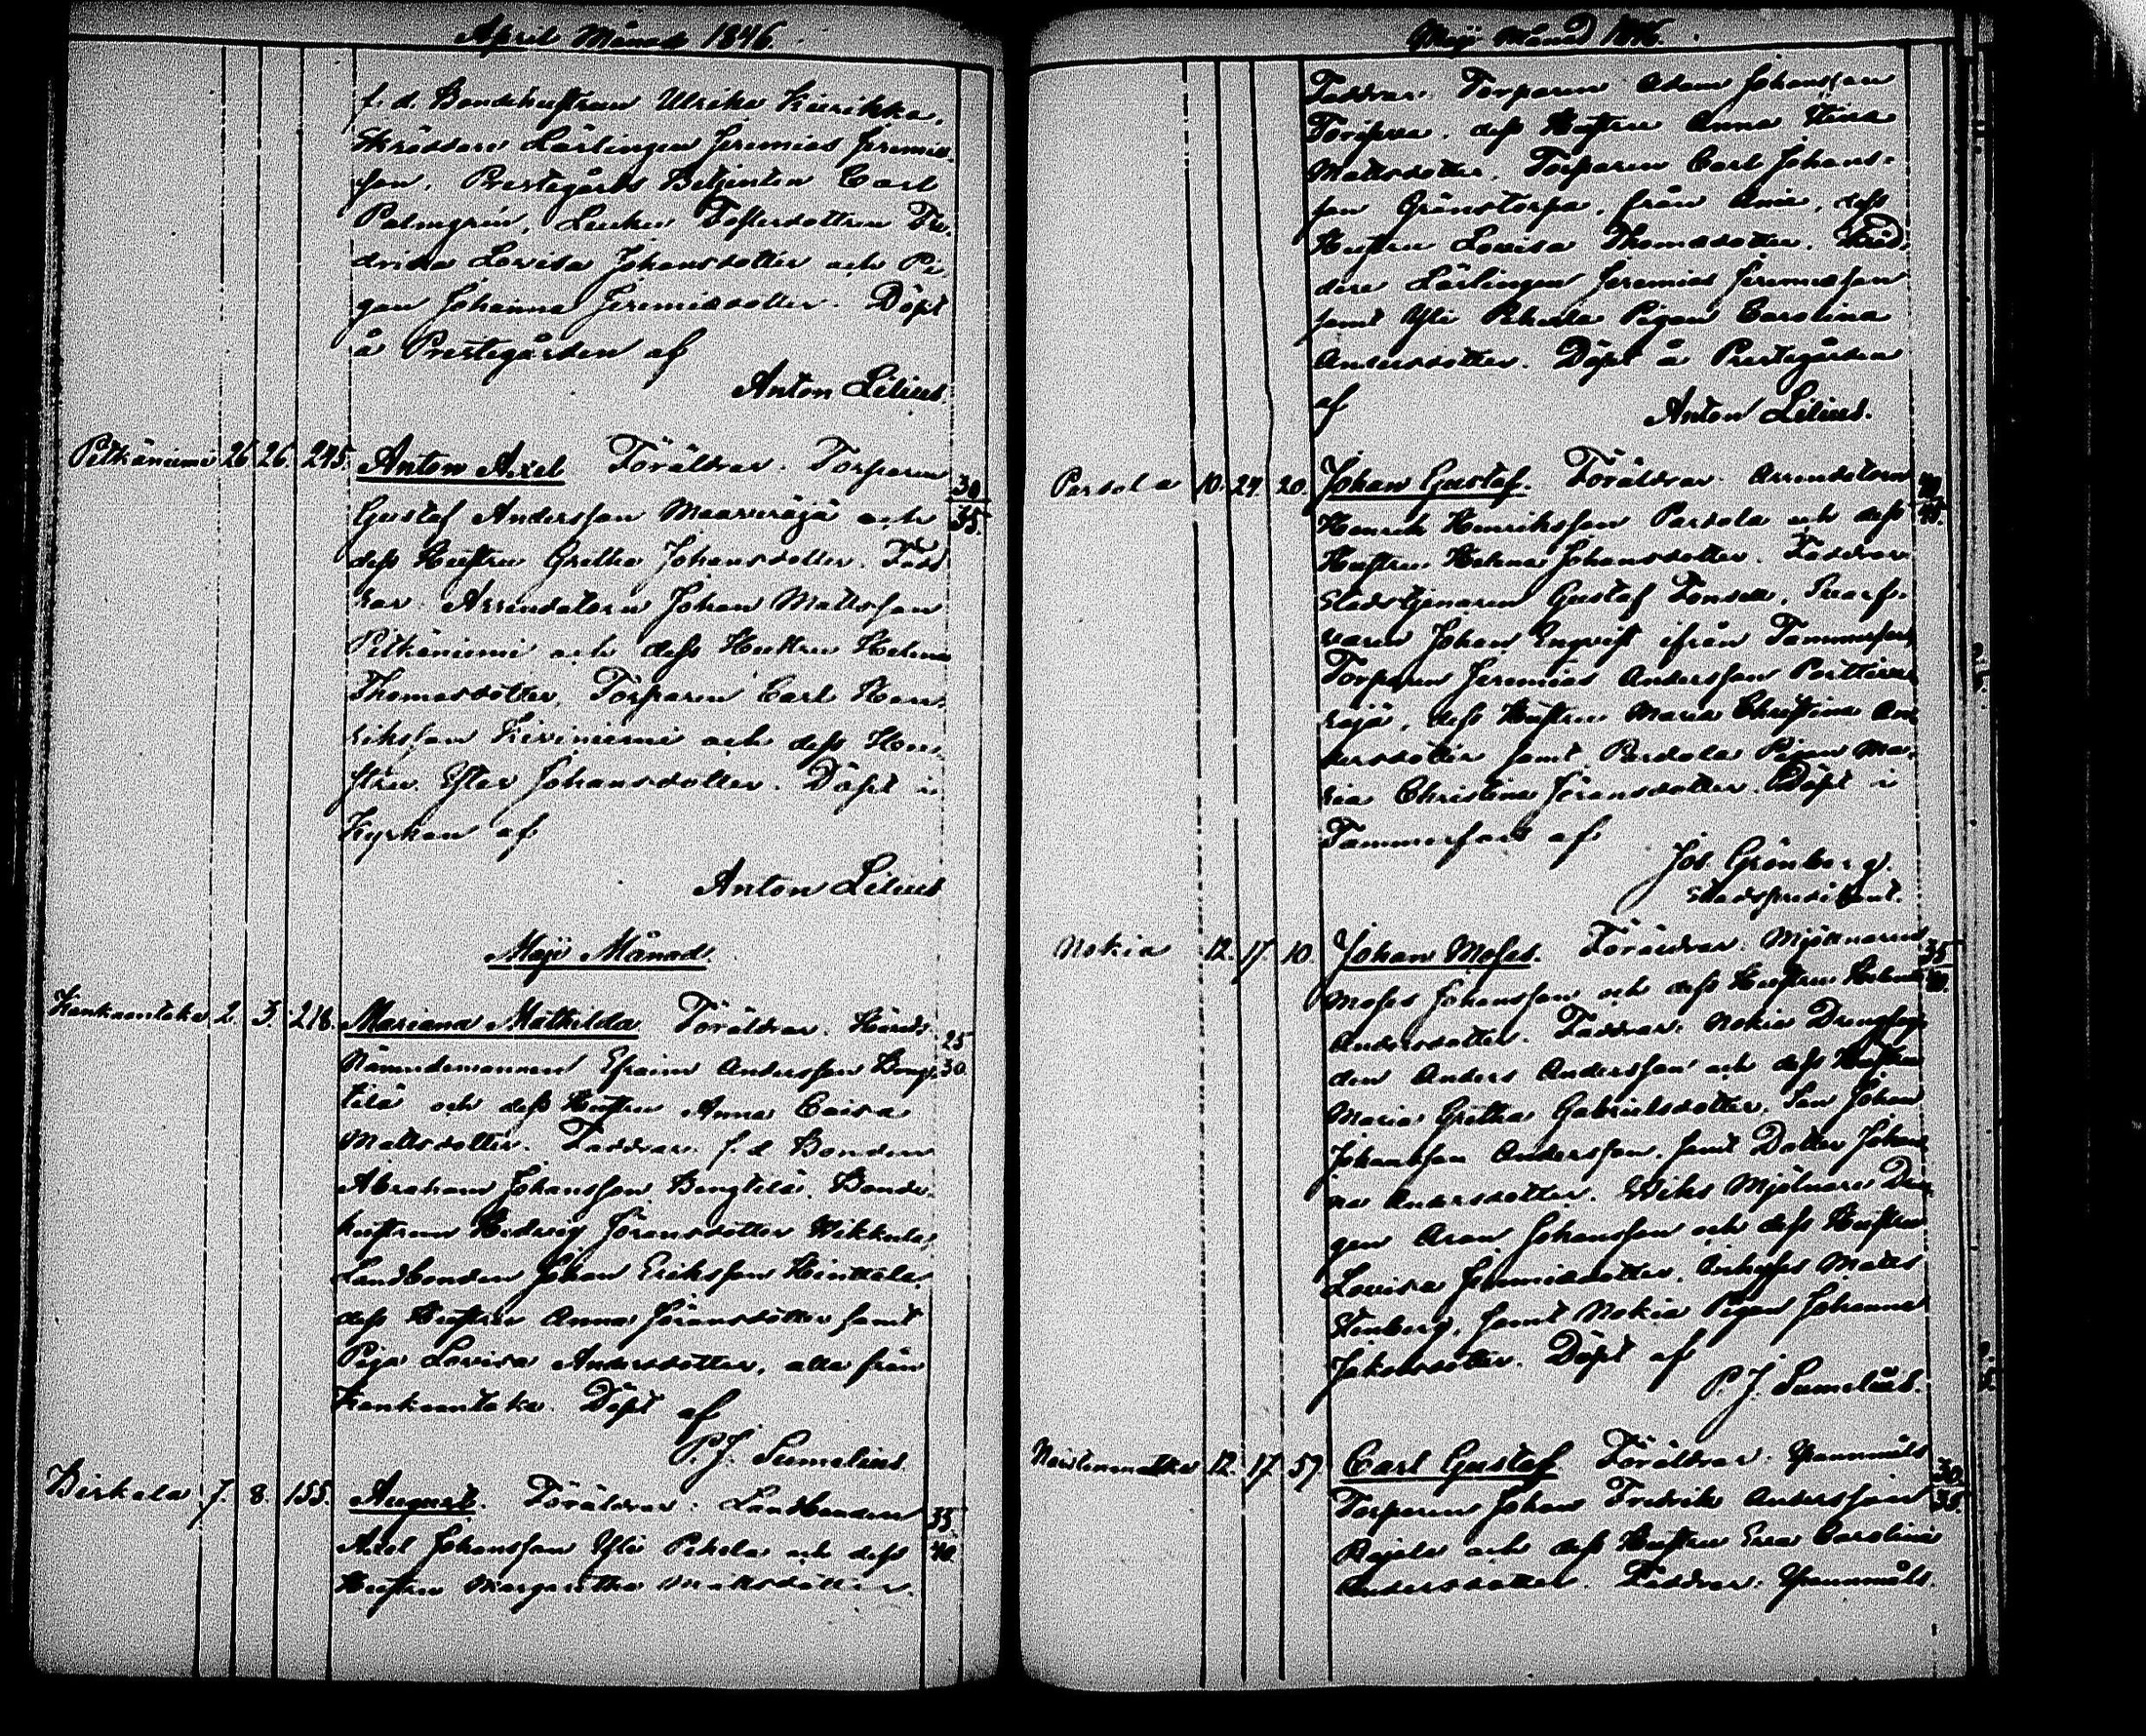 April Månad 1846.
f. d. Bondehustrun Ulrika Kierikka,
Skräddare Lärlingen Jeremias Jeremias-
son, Prestegårds Betjenten Carl
Palmgrén, Fosterdottren Fre-
drika Lovisa Johansdotter och Pi-
gan Johanna Jeremiædotter. Döpt
å Prestegården af
Anton Lilius.
Pitkäniemi 26. 26. 245. Anton Axel Föräldrar. Torparen 30
Gustaf Andersson och 35.
dess Hustru Gretha Johansdotter. Fadd-
rar. Arrendatorn Johan Mattsson
Pitkäniemi och dess Hustru Helena
Thomasdotter, Torparen Carl Hen-
riksson Kiviniemi och dess Hu-
stru Ester Johansdotter. Döpt i
Kyrkan af
Anton Lilius
Maji Månad.
Kankaantaka 2. 3. 218. Mariana Mathilda Föräldrar. Härads- 25
Nämndemannen Efraim Andersson Beng- 30.
tilä och dess Hustru Anna Caisa
Mattsdotter. Faddrar. f. d. Bonden
Abraham Johansson Bengtilä, Bonde-
hustrun Hedvig Göransdotter Wikkula,
Landbonden Johan Eriksson
dess Hustru Anna Göransdotter samt
Piga Lovisa Andersdotter, alla från
Kankaantaka. Döpt af
P. J. Sumelius.
Birkala 7. 8. 155. August. Föräldrar. Landbonden 35.
Axel Johansson Yli Pehela och dess 40.
Hustru Margaretha Mattsdotter.
Maji Månad 1846.
Faddrar. Torparen Adam Johansson
dess Hustru Anna Stina
Mattsdotter, Torparen Carl Johans-
son Gränstorpa, från dess
Hustru Lovisa Thomasdotter. Skräd-
dare Lärlingen Jeremias Jeremiasson
samt Yli Pehela Pigan Carolina
Andersdotter. Döpt å Prestegården
af Anton Lilius.
Partola 10. 24. 20. Johan Gustaf. Föräldrar. Arrendatorn 40.
Henrik Henriksson Partola och dess 45.
Hustru Helena Johansdotter. Faddrar
Stadstjenaren Gustaf
Johan Engvist ifrån Tammerfors,
Torparen Jeremias Andersson
dess Hustru Maria Christina An-
dersdotter samt Partola Pigan Ma-
ria Christina Göransdotter. Döpt i
Tammerfors af
Jos. Grönberg.
Stadspredikant.
Nokia 12. 17. 10. Johan Moses. Föräldrar. Mjölnaren 35
Moses Johansson och dess Hustru Helena 40.
Andersdotter. Faddrar. Nokia Drengfog-
den Anders Andersson och dess Hustru
Maria Gretha Gabrielsdotter, Son Johan
Johansson Andersson, samt Dotter Johan-
na Andersdotter. Wiks Mjölnare Dren-
gen Aron Johansson och dess Hustru
Lovisa Jeremiædotter, Matts
Stenberg, samt Nokia Pigan Johanna
Jakobsdotter. Döpt af
P. J. Sumelius.
Naistenmatka 12. 17. 57. Carl Gustaf Föräldrar. Spannmåls 30.
Torparen Johan Fredrik Andersson 35.
Rajala och dess Hustru Eva Carolina
Andersdotter. Faddrar. Spannmåls